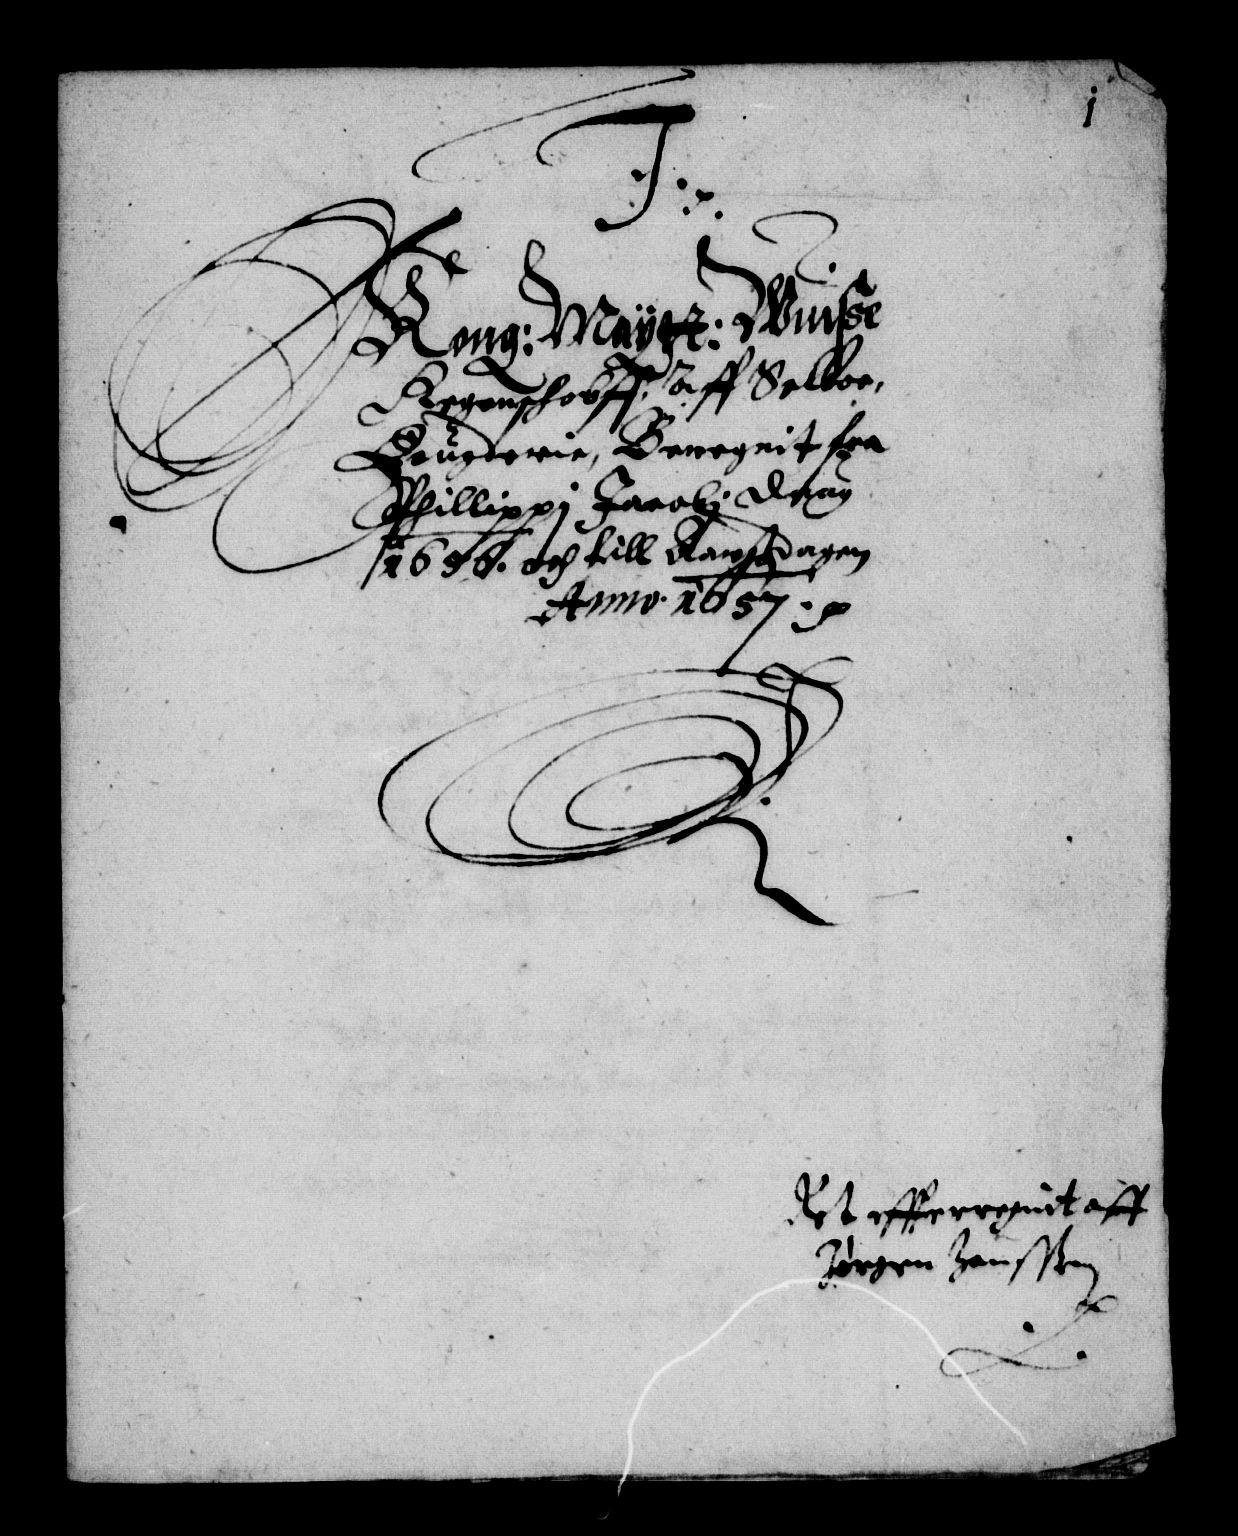 1
J.
Kong: Maÿtz: Wiise
Regenschabff, aff Selboe,
Fougderie, Beregnit fra
Phillippj Jacobj Daag
1656. och till Aarsdagen
Anno. 1657.
Ret offuerregnit aff
Jørgen Hanssen